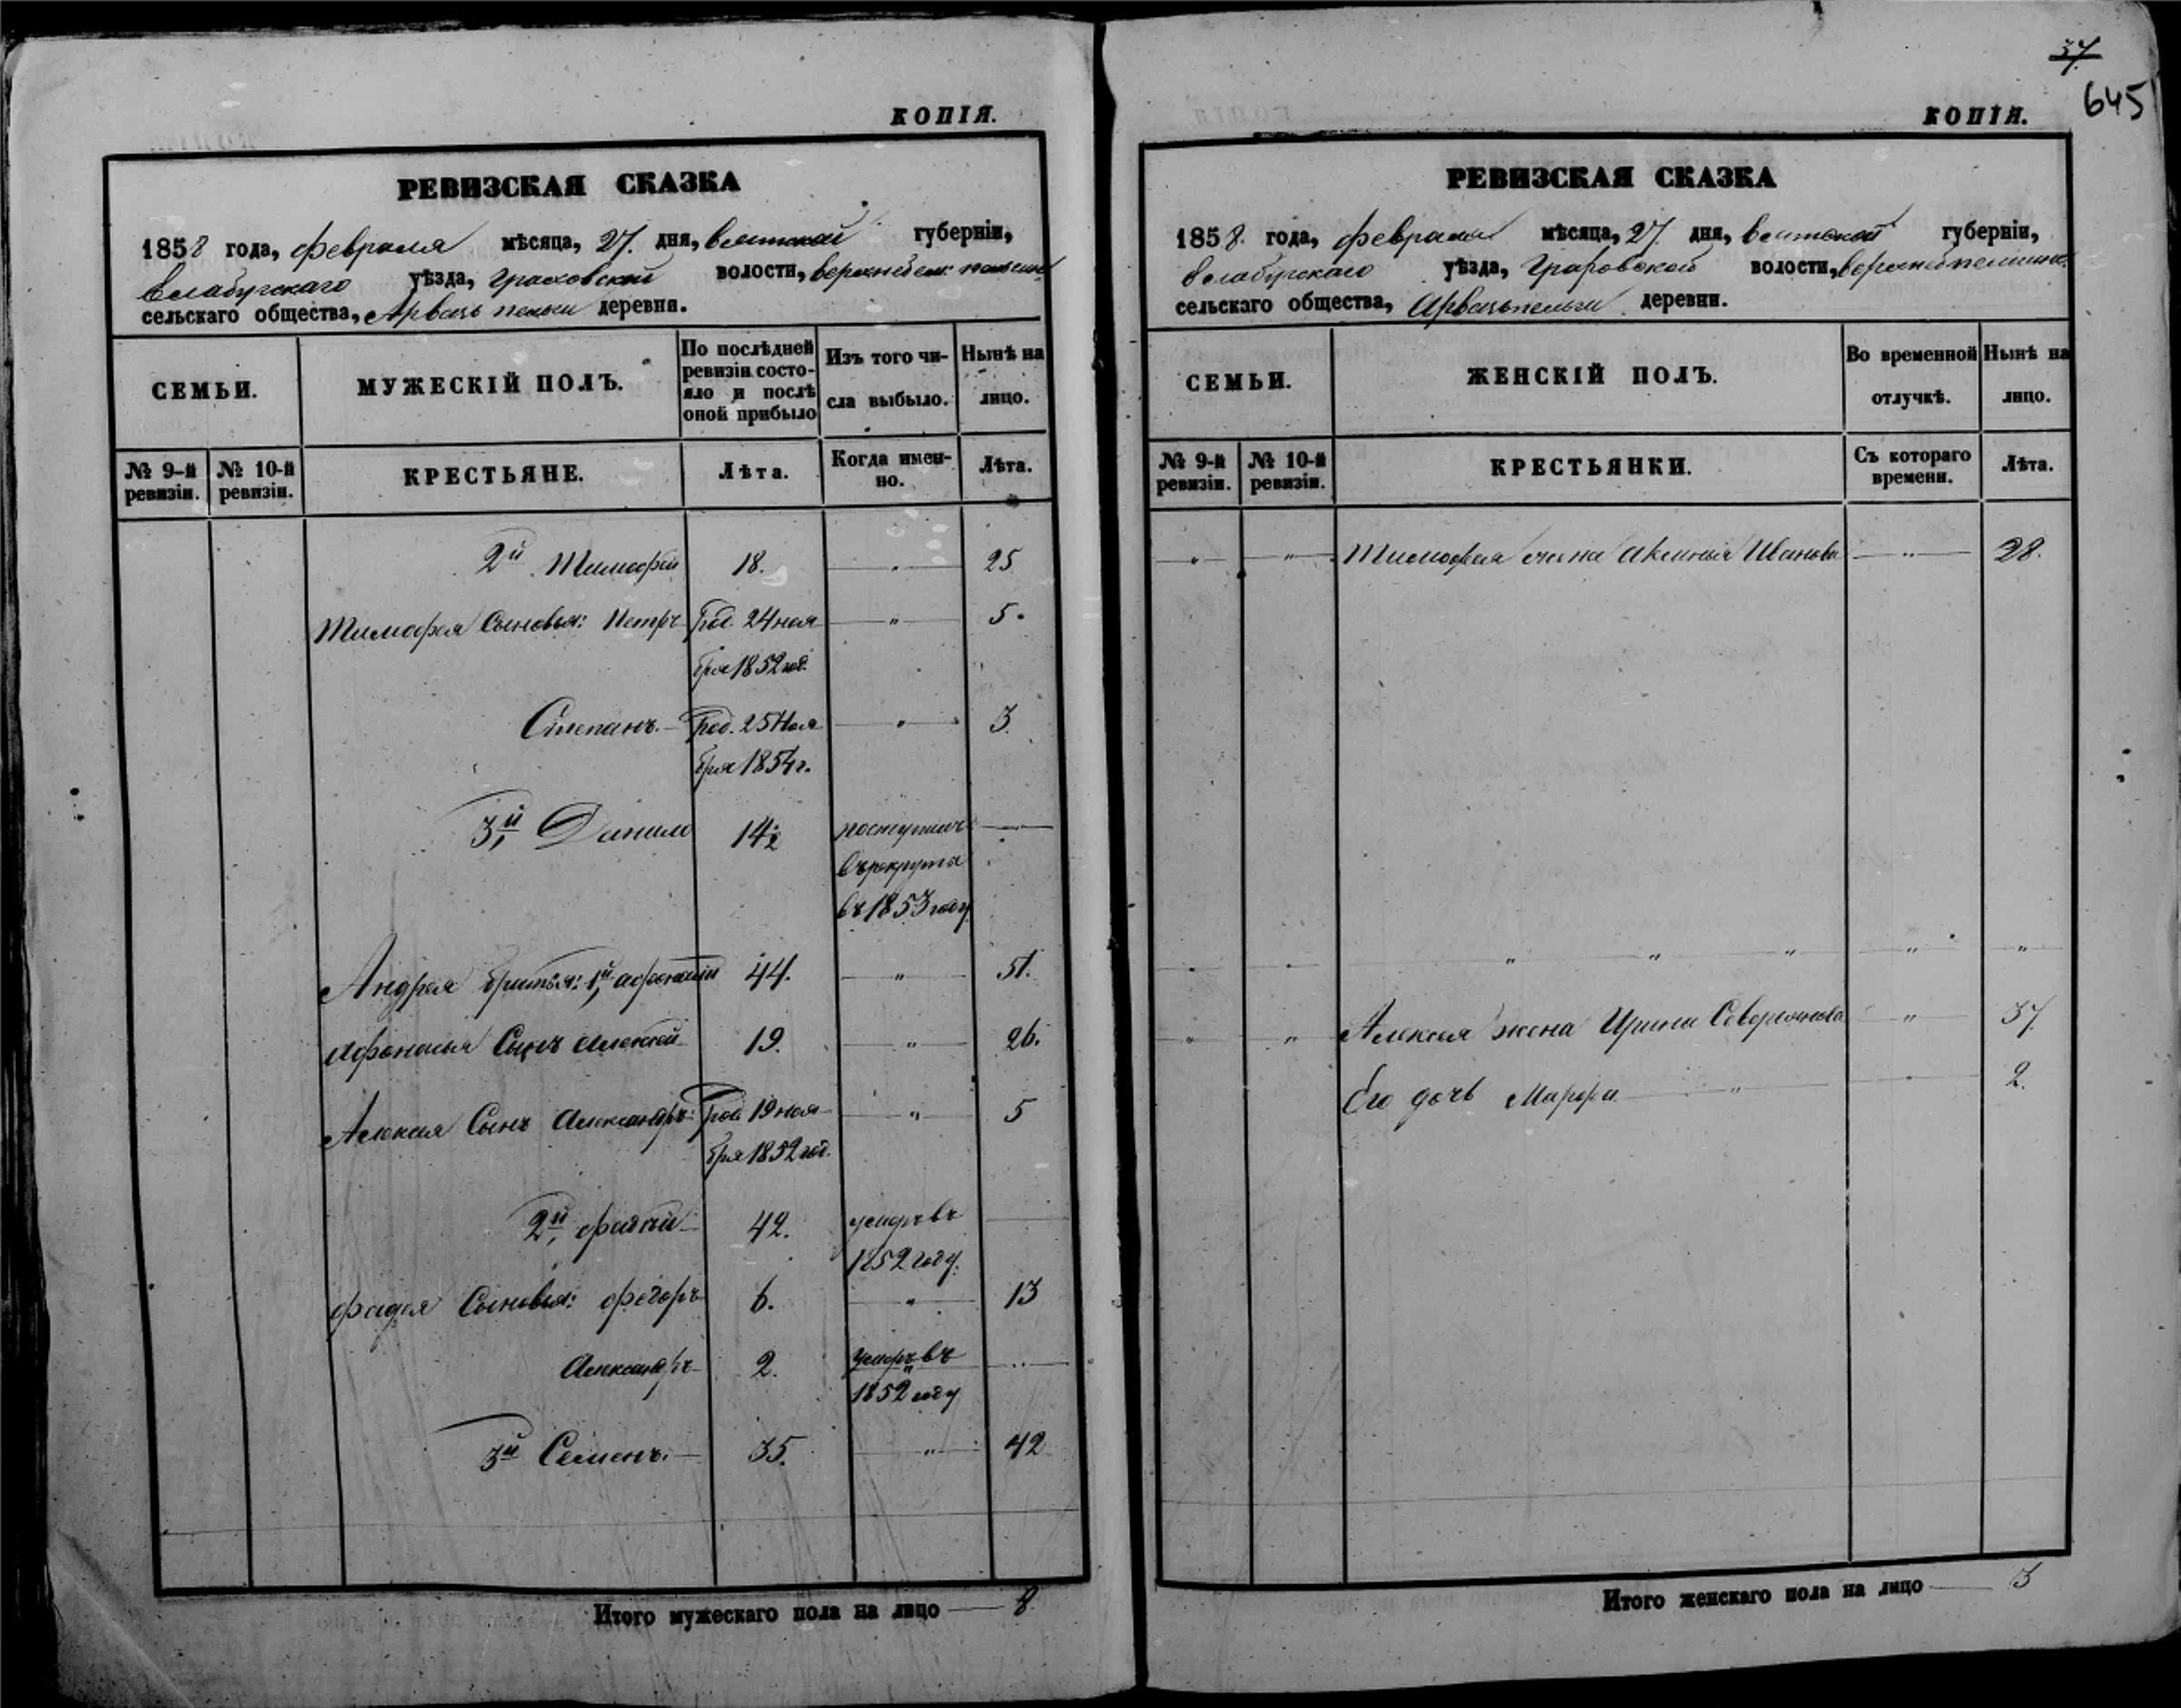 КОПІЯ.
РЕВИЗСКАЯ СКАЗКА
1858 года, февраля мѣсяца, 27. дня, Вятской губерніи,
Елабугскаго уѣзда, Граховской волости,
сельскаго общества, деревни.
СЕМЬИ.
МУЖЕСКІЙ ПОЛЪ.
По послѣдней ревизіи состояло и послѣ оной прибыло
Изъ того числа выбыло.
Нынѣ на лицо.
№ 9-й ревизіи.
№ 10-й ревизіи.
КРЕСТЬЯНЕ.
Лѣта.
Когда именно.
Лѣта.
2й Тимофей 18. — " — 25
Тимофея Сыновья: Петръ Род. 24 ноя — " — 5.
бря 1852 год.
Степанъ. — Род. 25 Ноя — " — 3.
бря 1854 г.
3й, Данило 14½ поступилъ —
въ рекруты
въ 1853 году
Андрея братья: 1й, Афонасій 44. — " — 51.
Афонасья Сынъ Алексей 19. — " — 26.
Алексея Сынъ Александръ: Род. 19 ноя — " — 5
бря 1852 год.
2й, Фадѣй 42. умеръ въ —
1852 году.
Фадея Сыновья: Федоръ 6. — " — 13
Александръ 2. умеръ въ —
1852 году
3й Семенъ. — 35. — " — 42
Итого мужескаго пола на лицо — 8
37
645
КОПІЯ.
РЕВИЗСКАЯ СКАЗКА
1858. года, февраля мѣсяца, 27. дня, Вятской губерніи,
Елабугскаго уѣзда, Граховской волости,
сельскаго общества, деревни.
СЕМЬИ.
ЖЕНСКІЙ ПОЛЪ.
Во временной отлучкѣ.
Нынѣ на лицо.
№ 9-й ревизіи.
№ 10-й ревизіи.
КРЕСТЬЯНКИ.
Съ котораго времени.
Лѣта.
— " — — " — Тимофея жена Аксинья Иванова — " — 28.
" " " " "
" " Алексея жена Ирина — " — 37.
Его дочь Марфа — " — 2.
Итого женскаго пола на лицо — 3